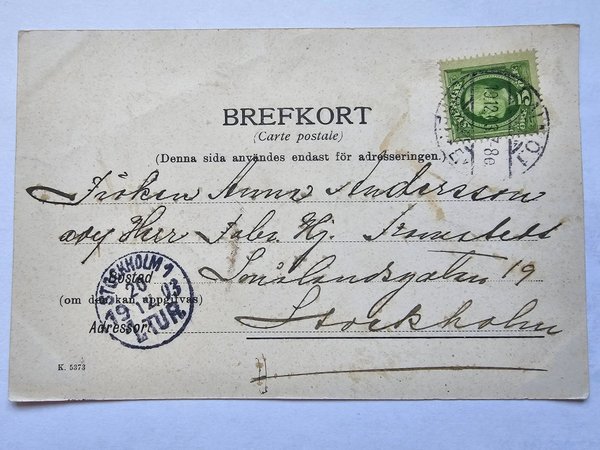 BREFKORT
(Carte postale)
(Denna sida användes endast för adresseringen.)
Fröken Anna Andersson
adr Herr Fabr. Hj.
Smålandsgatan 19
Bostad
(om den kan uppgifvas)
Stockholm
Adressort
STOCKHOLM 1
20
19 12 03
1.TUR
K. 5373
5